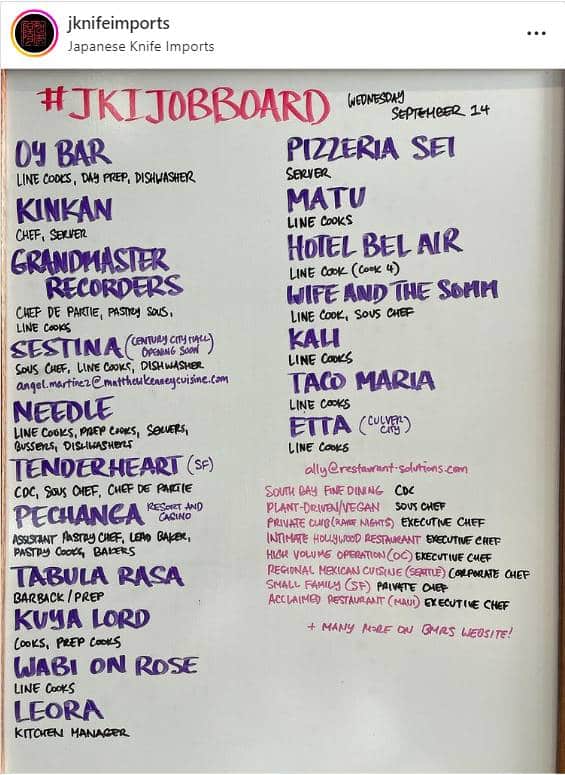 jknifeimports
Japanese Knife Imports
#JKIJOBBOARD
WEDNESDAY
SEPTEMBER 14
OY BAR
LINE COOKS, DAY PREP, DISHWASHER
KINKAN
CHEF, SERVER
GRANDMASTER
RECORDERS
CHEF DE PARTIE, PASTRY SOUS,
LINE COOKS
SESTINA (CENTURY CITY MALL)
OPENING SOON
SOUS CHEF, LINE COOKS, DISHWASHER
angel.martinez@matthewkenneycuisine.com
NEEDLE
LINE COOKS, PREP COOKS, SERVERS,
BUSSERS, DISHWASHERS
TENDERHEART (SF)
CDC, SOUS CHEF, CHEF DE PARTIE
PECHANGA RESORT AND
CASINO
ASSISTANT PASTRY CHEF, LEAD BAKER,
PASTRY COOKS, BAKERS
TABULA RASA
BARBACK/PREP
KUYA LORD
COOKS, PREP COOKS
WABI ON ROSE
LINE COOKS
LEORA
KITCHEN MANAGER
PIZZERIA SEI
SERVER
MATU
LINE COOKS
HOTEL BEL AIR
LINE COOK (COOK 4)
WIFE AND THE SOMM
LINE COOK, SOUS CHEF
KALI
LINE COOKS
TACO MARIA
LINE COOKS
ETTA (CULVER
CITY)
LINE COOKS
ally@restaurant-solutions.com
SOUTH BAY FINE DINING CDC
PLANT-DRIVEN/VEGAN SOUS CHEF
PRIVATE CLUB (RARE NIGHTS) EXECUTIVE CHEF
INTIMATE HOLLYWOOD RESTAURANT EXECUTIVE CHEF
HIGH VOLUME OPERATION (OC) EXECUTIVE CHEF
REGIONAL MEXICAN CUISINE (SEATTLE) CORPORATE CHEF
SMALL FAMILY (SF) PRIVATE CHEF
ACCLAIMED RESTAURANT (MAUI) EXECUTIVE CHEF
+ MANY MORE ON BMRS WEBSITE!